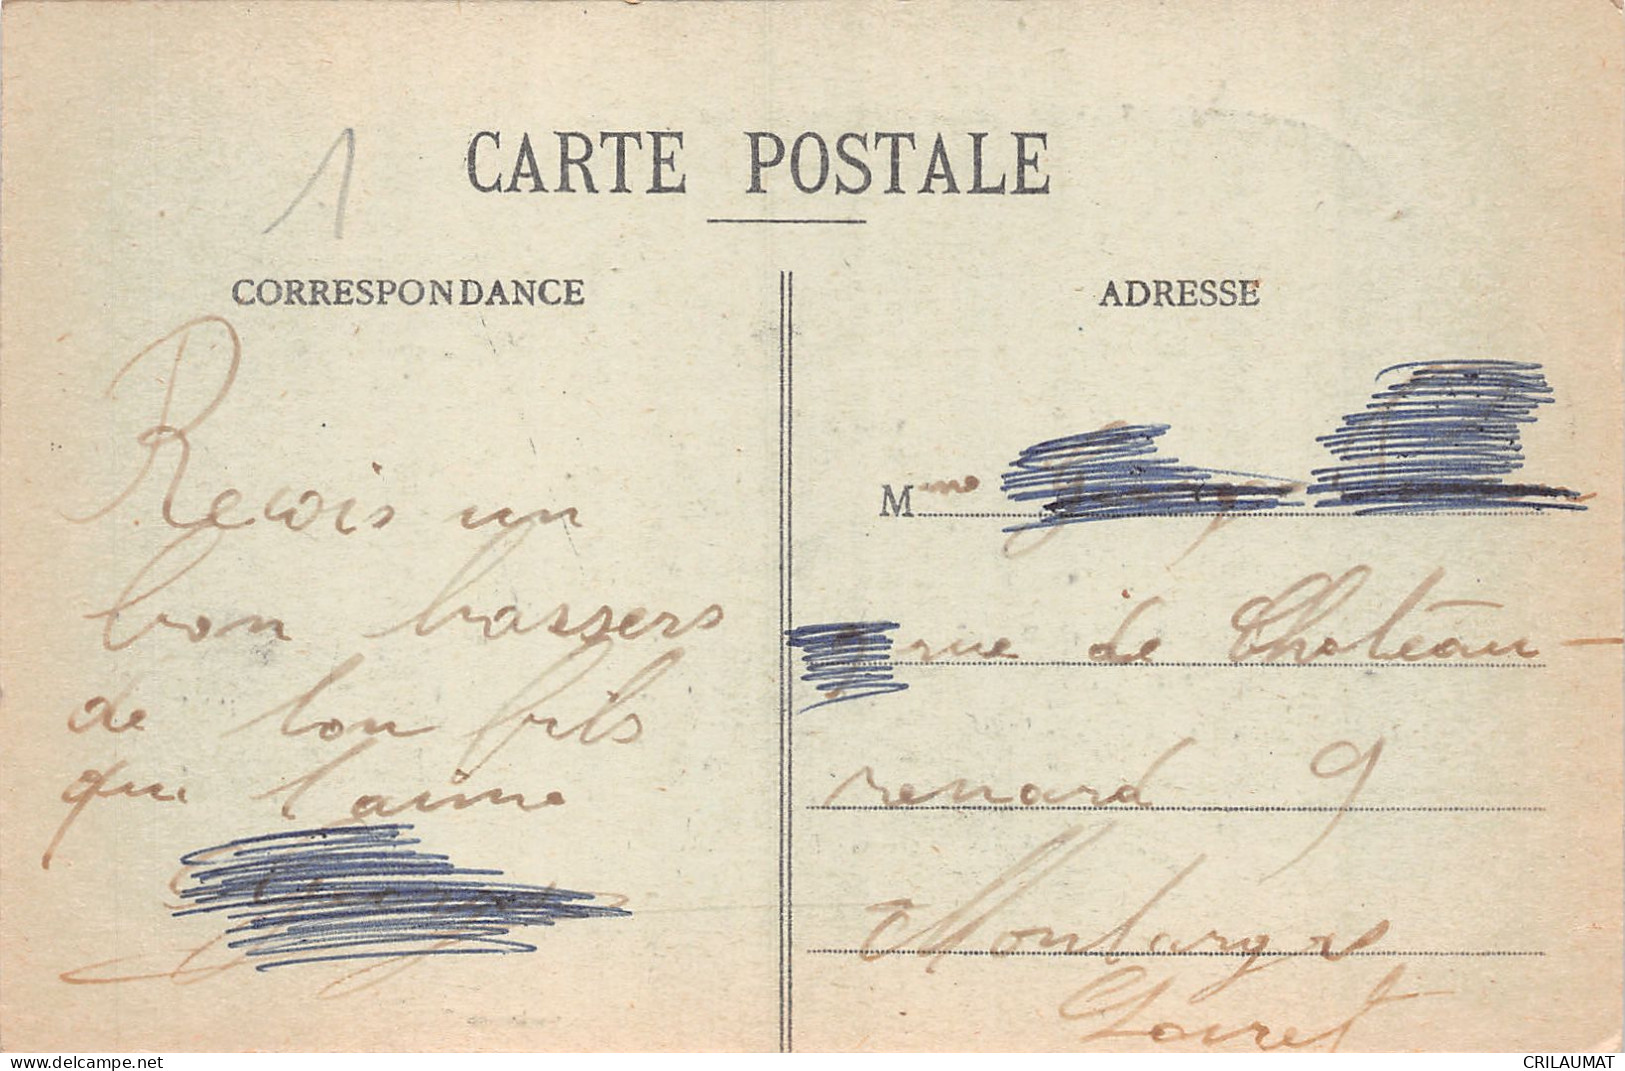 1
CARTE POSTALE
CORRESPONDANCE
Recois un
bon bassers
de ton fils
qui t'aime
ADRESSE
Mme
rue de Chateau-
renard 9
Montargis
Loiret
www.delcampe.net
CRILAUMAT